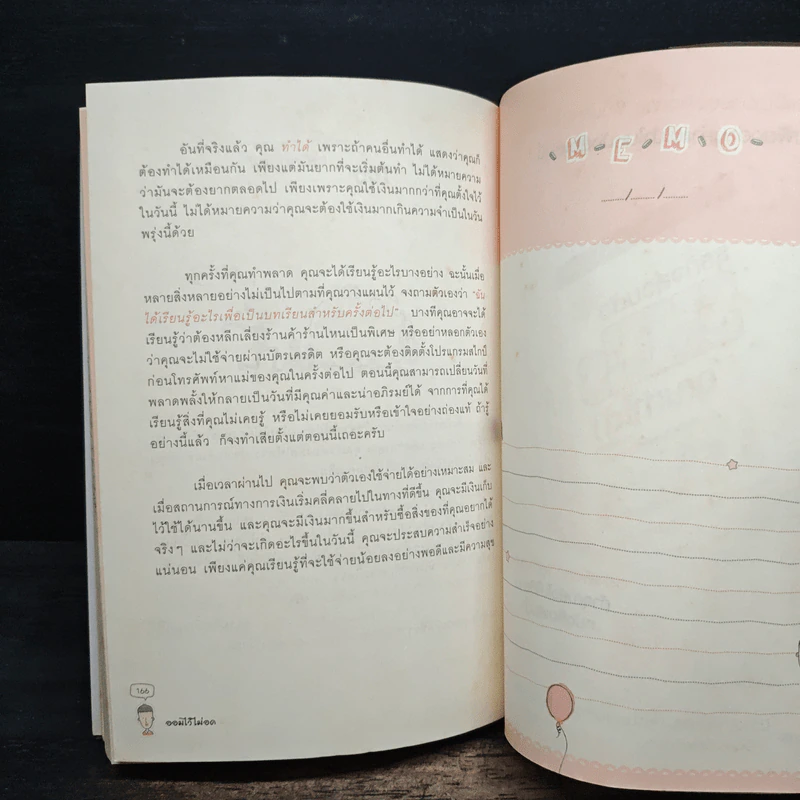 อันที่จริงแล้ว คุณ ทำได้ เพราะถ้าคนอื่นทำได้ แสดงว่าคุณก็
ต้องทำได้เหมือนกัน เพียงแต่มันยากที่จะเริ่มต้นทำ ไม่ได้หมายความ
ว่ามันจะต้องยากตลอดไป เพียงเพราะคุณใช้เงินมากกว่าที่คุณตั้งใจไว้
ในวันนี้ ไม่ได้หมายความว่าคุณจะต้องใช้เงินมากเกินความจำเป็นในวัน
พรุ่งนี้ด้วย
ทุกครั้งที่คุณทำพลาด คุณจะได้เรียนรู้อะไรบางอย่าง ฉะนั้นเมื่อ
หลายสิ่งหลายอย่างไม่เป็นไปตามที่คุณวางแผนไว้ จงถามตัวเองว่า "ฉัน
ได้เรียนรู้อะไรเพื่อเป็นบทเรียนสำหรับครั้งต่อไป" บางทีคุณอาจจะได้
เรียนรู้ว่าต้องหลีกเลี่ยงร้านค้าร้านไหนเป็นพิเศษ หรืออย่าหลอกตัวเอง
ว่าคุณจะไม่ใช้จ่ายผ่านบัตรเครดิต หรือคุณจะต้องติดตั้งโปรแกรมสไกป์
ก่อนโทรศัพท์หาแม่ของคุณในครั้งต่อไป ตอนนี้คุณสามารถเปลี่ยนวันที่
พลาดพลั้งให้กลายเป็นวันที่มีคุณค่าและน่าอภิรมย์ได้ จากการที่คุณได้
เรียนรู้สิ่งที่คุณไม่เคยรู้ หรือไม่เคยยอมรับหรือเข้าใจอย่างถ่องแท้ ถ้ารู้
อย่างนี้แล้ว ก็จงทำเสียตั้งแต่ตอนนี้เถอะครับ
เมื่อเวลาผ่านไป คุณจะพบว่าตัวเองใช้จ่ายได้อย่างเหมาะสม และ
เมื่อสถานการณ์ทางการเงินเริ่มคลี่คลายไปในทางที่ดีขึ้น คุณจะมีเงินเก็บ
ไว้ใช้ได้นานขึ้น และคุณจะมีเงินมากขึ้นสำหรับซื้อสิ่งของที่คุณอยากได้
จริงๆ และไม่ว่าจะเกิดอะไรขึ้นในวันนี้ คุณจะประสบความสำเร็จอย่าง
แน่นอน เพียงแค่คุณเรียนรู้ที่จะใช้จ่ายน้อยลงอย่างพอดีและมีความสุข
166
ออมไว้ไม่อด
MEMO
......../......../........